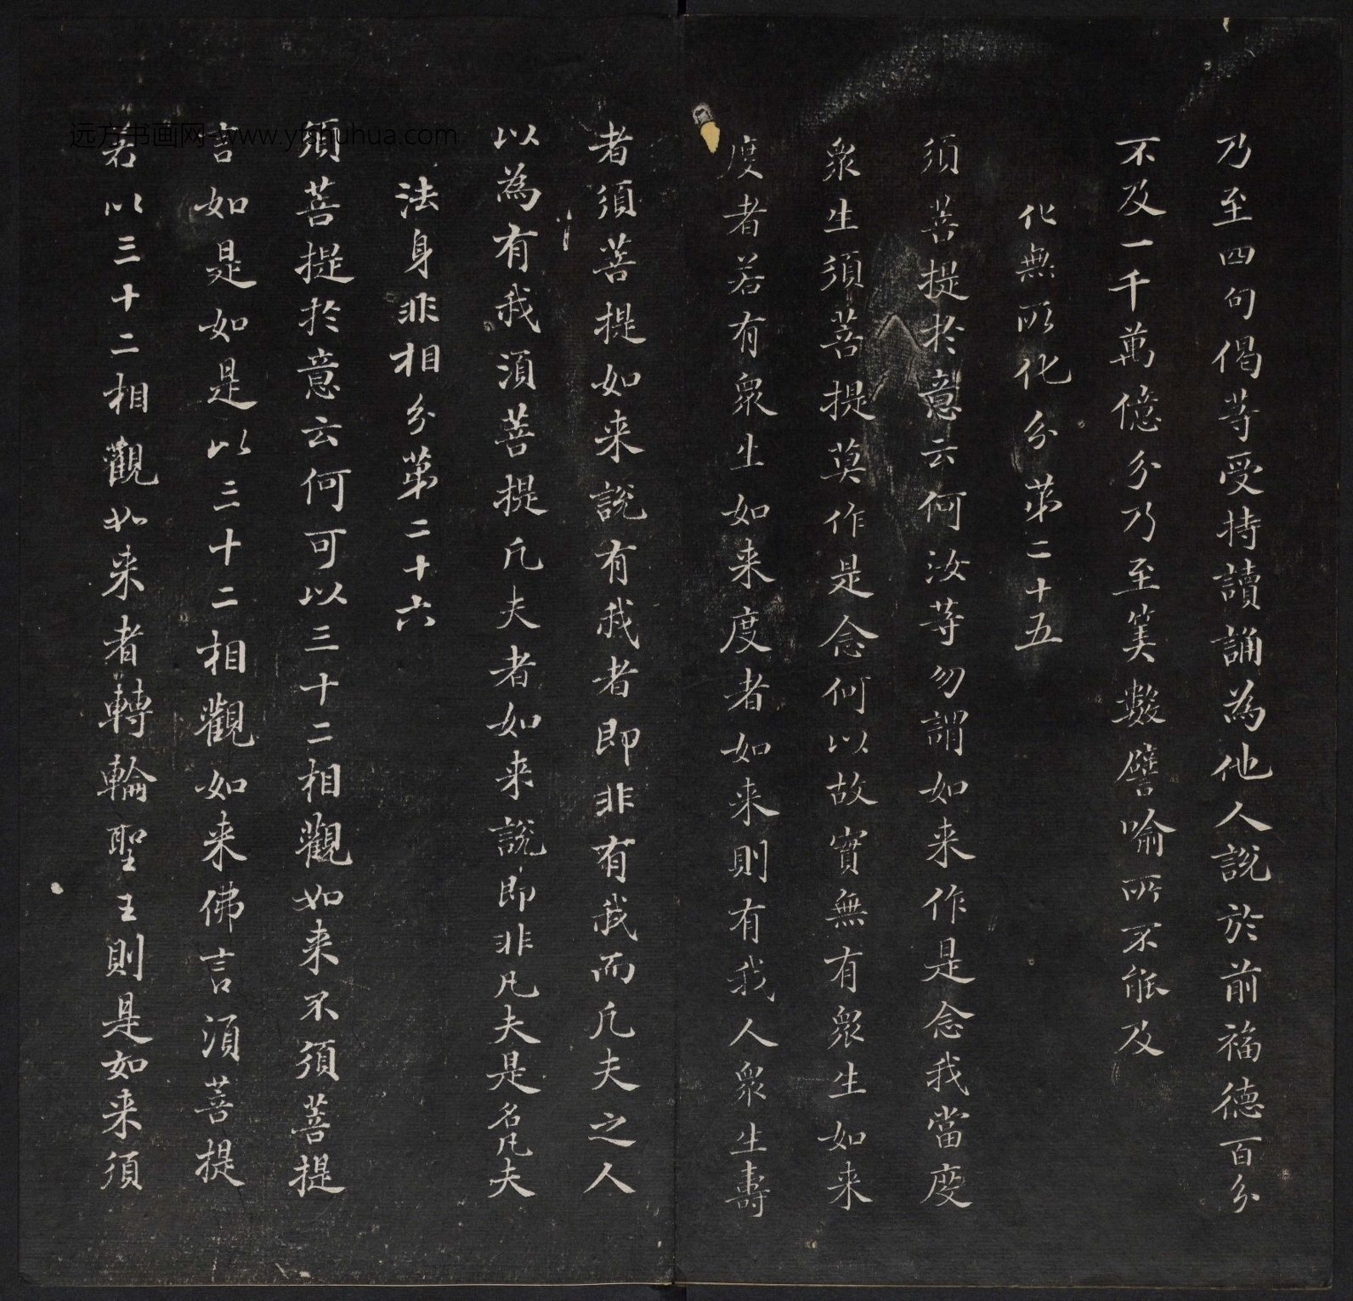 乃至四句偈等受持讀誦為他人說於前福德百分
不及一千萬億分乃至筭數譬喻所不能及
化無所化分第二十五
須菩提於意云何汝等勿謂如来作是念我當度
衆生須菩提莫作是念何以故實無有衆生如来
度者若有衆生如来度者如来則有我人衆生壽
者須菩提如来說有我者即非有我而凡夫之人
以為有我須菩提凡夫者如来說即非凡夫是名凡夫
法身非相分第二十六
須菩提於意云何可以三十二相觀如来不須菩提
言如是如是以三十二相觀如来佛言須菩提
若以三十二相觀如来者轉輪聖王則是如来須
远方书画网 www.yfshuhua.com